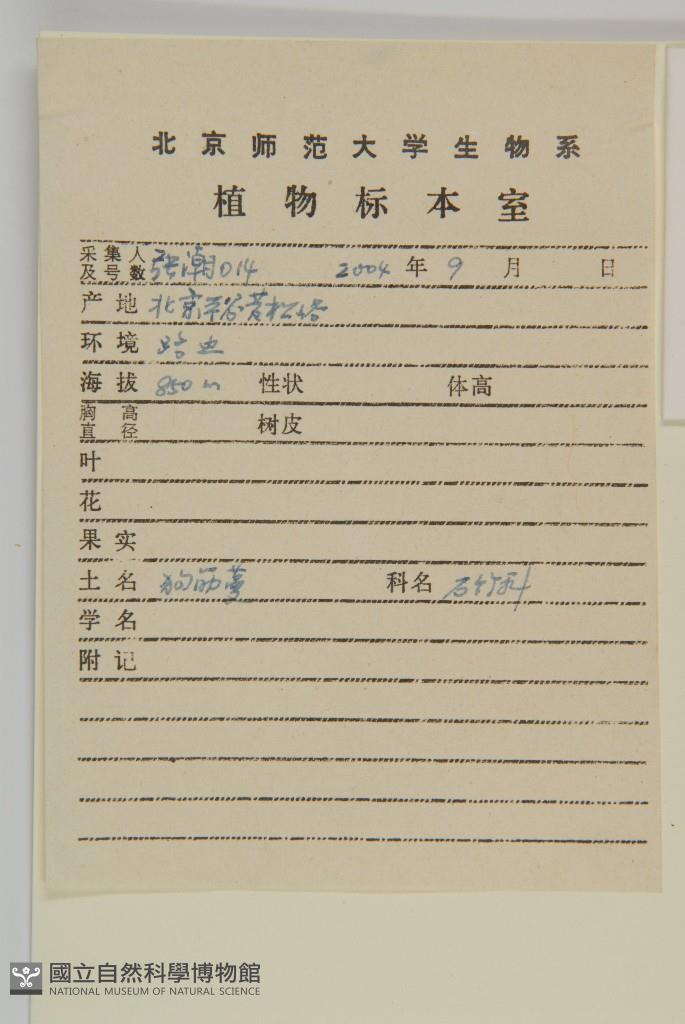 北京师范大学生物系
植物标本室
采集人及号数 张潮014 2004 年 9 月 日
产地 北京平谷黄松峪
环境 路边
海拔 850 m 性状 体高
胸高直径 树皮
叶
花
果实
土名 狗筋蔓 科名 石竹科
学名
附记
國立自然科學博物館
NATIONAL MUSEUM OF NATURAL SCIENCE